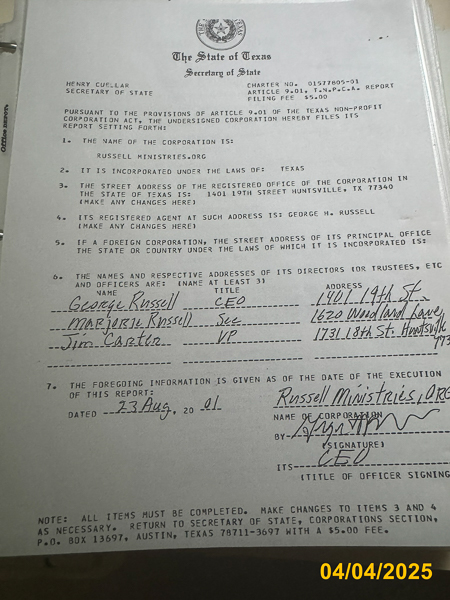 The State of Texas
Secretary of State
HENRY CUELLAR
SECRETARY OF STATE
CHARTER NO. 01577805-01
ARTICLE 9.01, T.N.P.C.A. REPORT
FILING FEE $5.00
PURSUANT TO THE PROVISIONS OF ARTICLE 9.01 OF THE TEXAS NON-PROFIT
CORPORATION ACT, THE UNDERSIGNED CORPORATION HEREBY FILES ITS
REPORT SETTING FORTH:
1. THE NAME OF THE CORPORATION IS:
RUSSELL MINISTRIES.ORG
2. IT IS INCORPORATED UNDER THE LAWS OF: TEXAS
3. THE STREET ADDRESS OF THE REGISTERED OFFICE OF THE CORPORATION IN
THE STATE OF TEXAS IS: 1401 19TH STREET HUNTSVILLE, TX 77340
(MAKE ANY CHANGES HERE)
4. ITS REGISTERED AGENT AT SUCH ADDRESS IS: GEORGE H. RUSSELL
(MAKE ANY CHANGES HERE)
5. IF A FOREIGN CORPORATION, THE STREET ADDRESS OF ITS PRINCIPAL OFFICE
THE STATE OR COUNTRY UNDER THE LAWS OF WHICH IT IS INCORPORATED IS:
6. THE NAMES AND RESPECTIVE ADDRESSES OF ITS DIRECTORS (OR TRUSTEES, ETC
AND OFFICERS ARE: (NAME AT LEAST 3)
NAME TITLE ADDRESS
George Russell CEO 1401 19th St.
Marjorie Russell Sec 1620 Woodland Lane
Jim Carter VP 1731 18th St. Huntsville
773
7. THE FOREGOING INFORMATION IS GIVEN AS OF THE DATE OF THE EXECUTION
OF THIS REPORT:
DATED 23 Aug, 20 01
Russell Ministries, ORG
NAME OF CORPORATION
BY
(SIGNATURE)
ITS CEO
(TITLE OF OFFICER SIGNING
NOTE: ALL ITEMS MUST BE COMPLETED. MAKE CHANGES TO ITEMS 3 AND 4
AS NECESSARY. RETURN TO SECRETARY OF STATE, CORPORATIONS SECTION,
P.O. BOX 13697, AUSTIN, TEXAS 78711-3697 WITH A $5.00 FEE.
04/04/2025